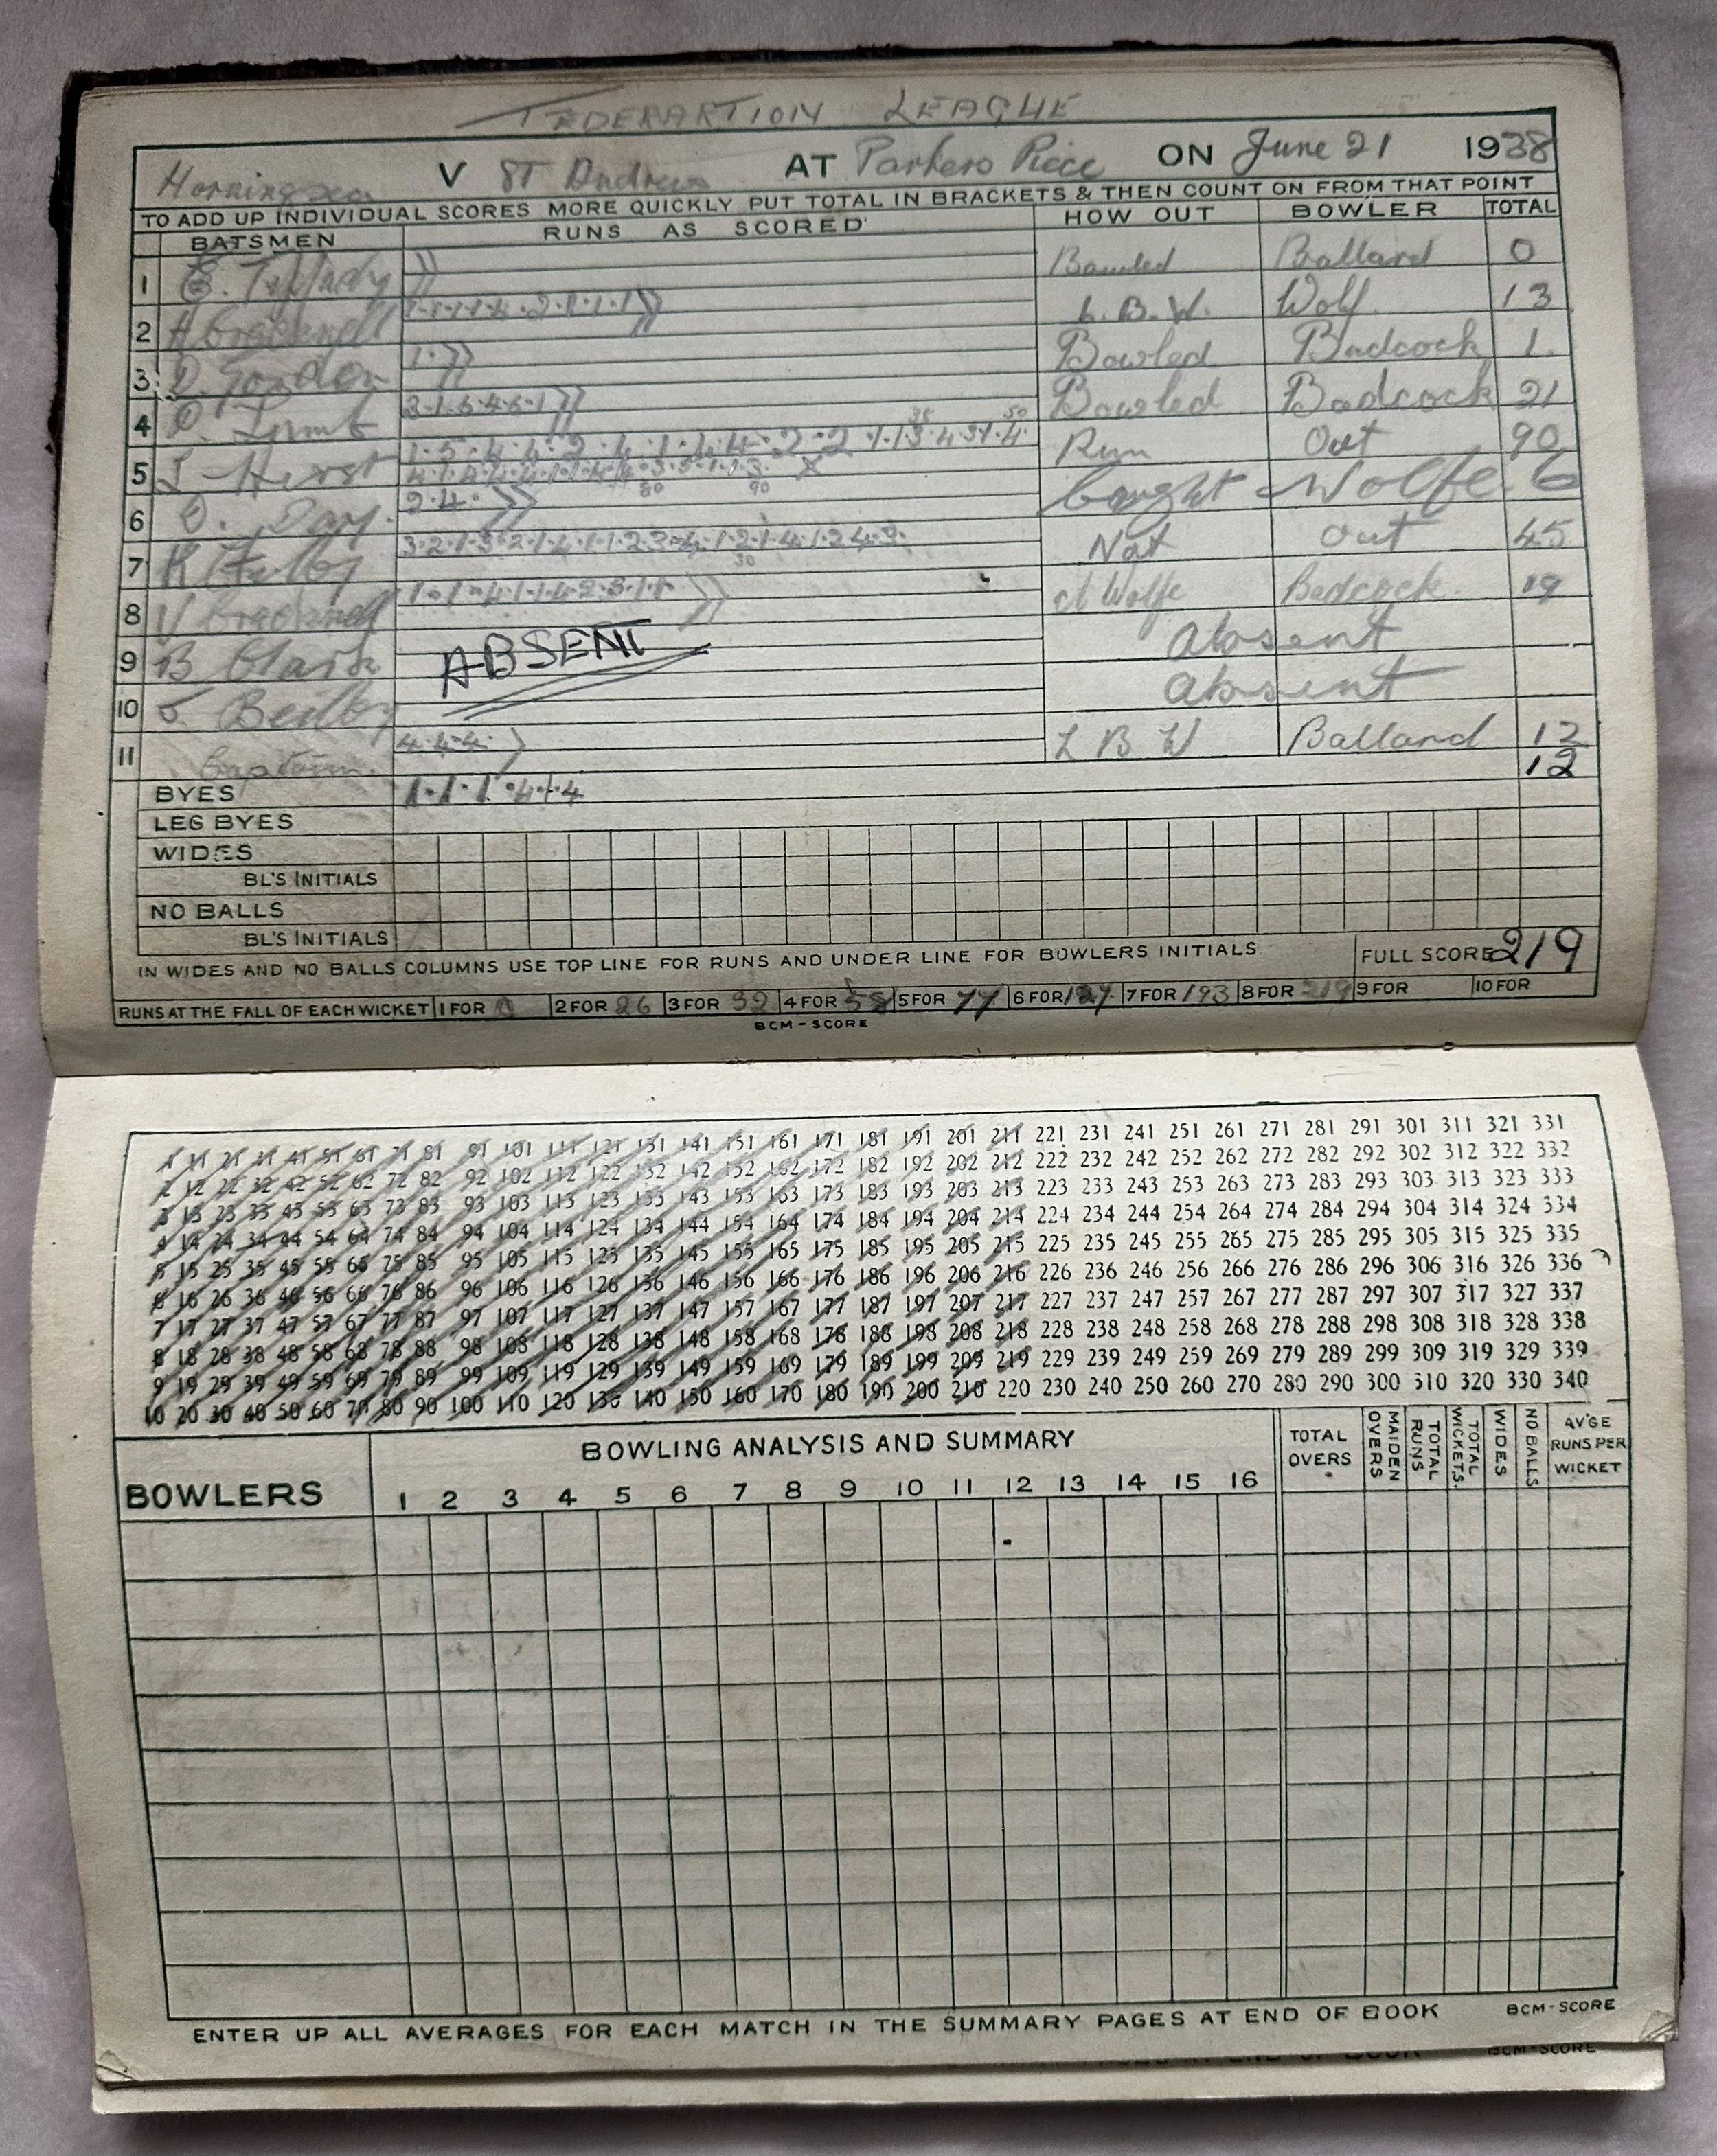 FEDERARTION LEAGUE
Horningsea V ST Andrews AT Parkers Piece ON June 21 1938
TO ADD UP INDIVIDUAL SCORES MORE QUICKLY PUT TOTAL IN BRACKETS & THEN COUNT ON FROM THAT POINT
BATSMEN RUNS AS SCORED HOW OUT BOWLER TOTAL
1 Bowled Ballard 0
2 1·1·1·1·4·2·1·1·1 L.B.W. Wolf 13
3 D. 1· Bowled Badcock 1.
4 3·1·6·4·6·1 Bowled Badcock 21
5 Hirst Run Out 90
6 D. Day. 2·4· Caught Wolfe 6
7 K Not out 45
8 V ct Wolfe Badcock 19
9 B Clark ABSENT Absent
10 Absent
11 Captain. 4·4·4· L B W Ballard 12
BYES 1·1·1·4·1·4 12
LEG BYES
WIDES
BL'S INITIALS
NO BALLS
BL'S INITIALS
IN WIDES AND NO BALLS COLUMNS USE TOP LINE FOR RUNS AND UNDER LINE FOR BOWLERS INITIALS. FULL SCORE 219
RUNS AT THE FALL OF EACH WICKET 1 FOR 0 2 FOR 26 3 FOR 32 4 FOR 58 5 FOR 77 6 FOR 127 7 FOR 193 8 FOR 219 9 FOR 10 FOR
BCM-SCORE
1 11 21 31 41 51 61 71 81 91 101 111 121 131 141 151 161 171 181 191 201 211 221 231 241 251 261 271 281 291 301 311 321 331
2 12 22 32 42 52 62 72 82 92 102 112 122 132 142 152 162 172 182 192 202 212 222 232 242 252 262 272 282 292 302 312 322 332
3 13 23 33 43 53 63 73 83 93 103 113 123 133 143 153 163 173 183 193 203 213 223 233 243 253 263 273 283 293 303 313 323 333
4 14 24 34 44 54 64 74 84 94 104 114 124 134 144 154 164 174 184 194 204 214 224 234 244 254 264 274 284 294 304 314 324 334
5 15 25 35 45 55 65 75 85 95 105 115 125 135 145 155 165 175 185 195 205 215 225 235 245 255 265 275 285 295 305 315 325 335
6 16 26 36 46 56 66 76 86 96 106 116 126 136 146 156 166 176 186 196 206 216 226 236 246 256 266 276 286 296 306 316 326 336
7 17 27 37 47 57 67 77 87 97 107 117 127 137 147 157 167 177 187 197 207 217 227 237 247 257 267 277 287 297 307 317 327 337
8 18 28 38 48 58 68 78 88 98 108 118 128 138 148 158 168 178 188 198 208 218 228 238 248 258 268 278 288 298 308 318 328 338
9 19 29 39 49 59 69 79 89 99 109 119 129 139 149 159 169 179 189 199 209 219 229 239 249 259 269 279 289 299 309 319 329 339
10 20 30 40 50 60 70 80 90 100 110 120 130 140 150 160 170 180 190 200 210 220 230 240 250 260 270 280 290 300 310 320 330 340
BOWLERS BOWLING ANALYSIS AND SUMMARY TOTAL OVERS MAIDEN OVERS TOTAL RUNS TOTAL WICKETS. WIDES NO BALLS AV'GE RUNS PER WICKET
1 2 3 4 5 6 7 8 9 10 11 12 13 14 15 16
ENTER UP ALL AVERAGES FOR EACH MATCH IN THE SUMMARY PAGES AT END OF BOOK BCM-SCORE
BCM-SCORE